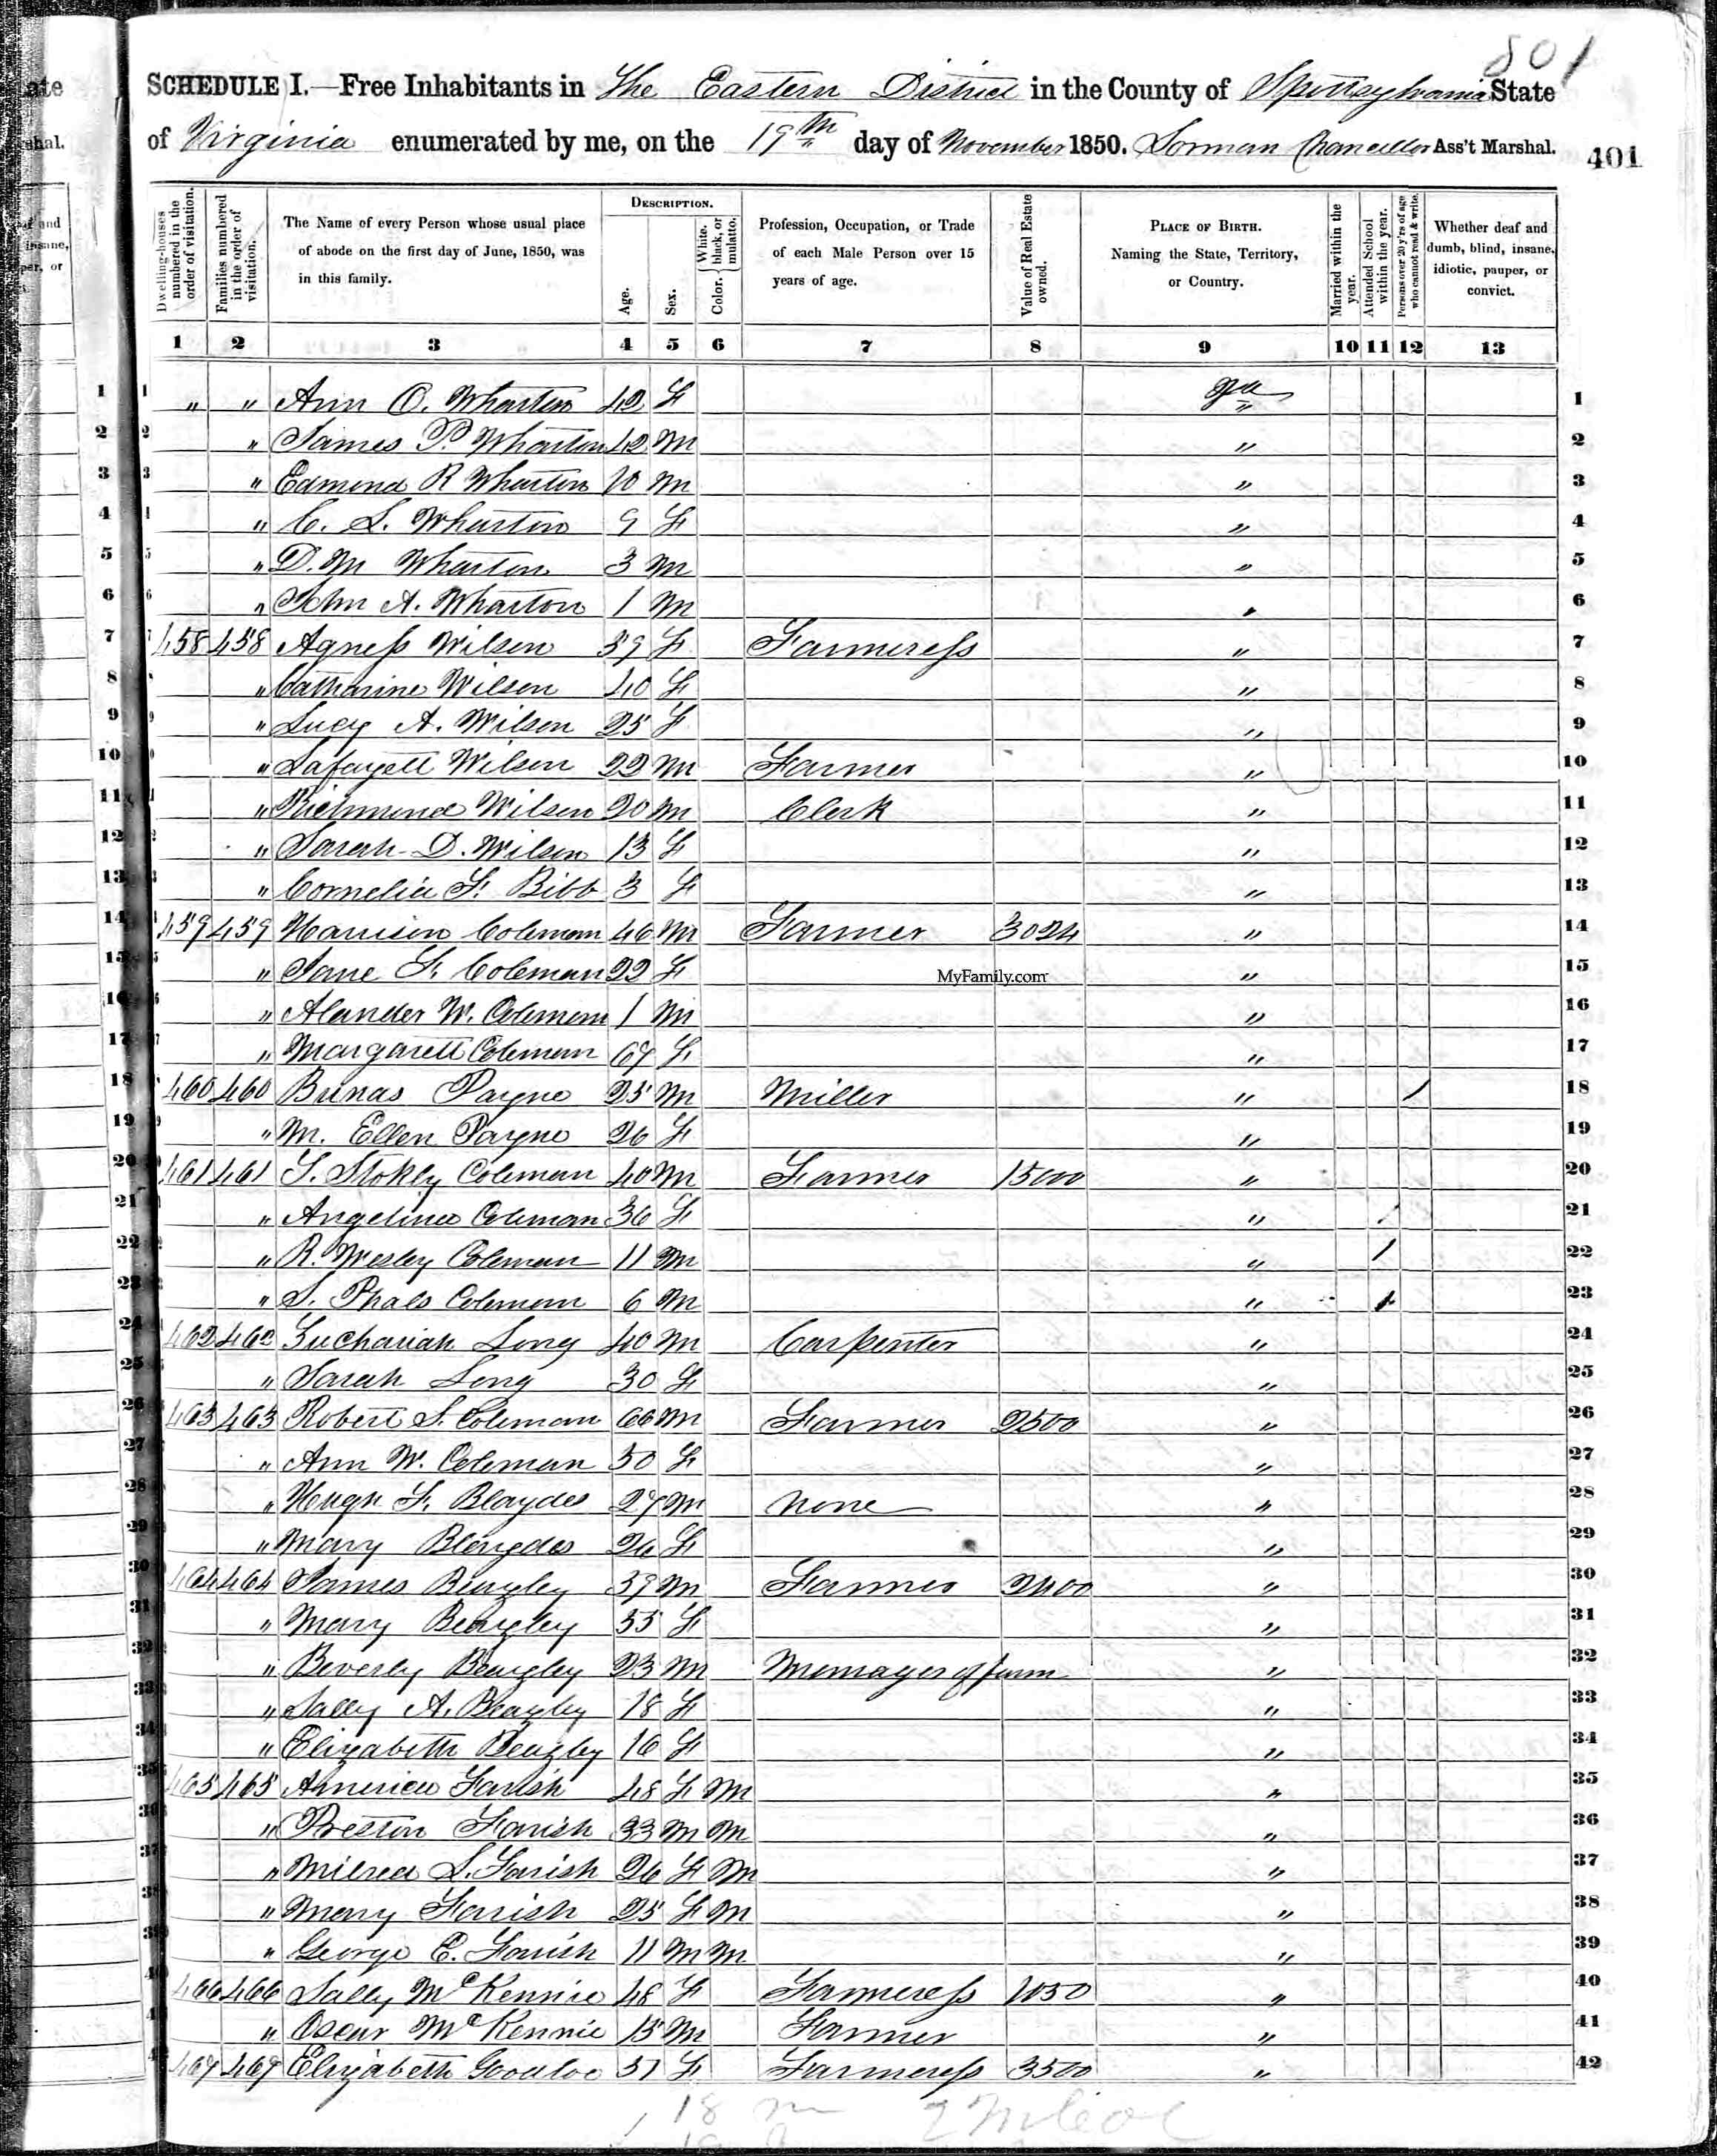 801
SCHEDULE I.—Free Inhabitants in The Eastern District in the County of Spottsylvania State
of Virginia enumerated by me, on the 19th day of November 1850. Chancellor Ass't Marshal. 401
Dwelling-houses numbered in the order of visitation.
Families numbered in the order of visitation.
The Name of every Person whose usual place of abode on the first day of June, 1850, was in this family.
DESCRIPTION.
Age.
Sex.
Color. { White, black, or mulatto.
Profession, Occupation, or Trade of each Male Person over 15 years of age.
Value of Real Estate owned.
PLACE OF BIRTH. Naming the State, Territory, or Country.
Married within the year.
Attended School within the year.
Persons over 20 y'rs of age who cannot read & write.
Whether deaf and dumb, blind, insane, idiotic, pauper, or convict.
1 2 3 4 5 6 7 8 9 10 11 12 13
1 " " Ann O. Wharton 42 F Va 1
2 " James P. Wharton 42 M " 2
3 " Edmond R Wharton 10 M " 3
4 " C. L. Wharton 9 F " 4
5 " D. M Wharton 3 M " 5
6 " John A. Wharton 1 M " 6
7 458 458 Agness Wilson 59 F Farmeress " 7
8 " Catharine Wilson 40 F " 8
9 " Lucy A. Wilson 25 F " 9
10 " Lafayett Wilson 22 M Farmer " 10
11 " Richmond Wilson 20 M Clerk " 11
12 " Sarah D. Wilson 13 F " 12
13 " Cornelia F. Bibb 3 F " 13
14 459 459 Harrison Coleman 46 M Farmer 3024 " 14
15 " Jane F. Coleman 22 F " 15
MyFamily.com
16 " Alander W. Coleman 1 M " 16
17 " Margarett Coleman 67 F " 17
18 460 460 Payne 25 M Miller " / 18
19 " M. Ellen Payne 26 F " 19
20 461 461 Stokly Coleman 40 M Farmer 1500 " 20
21 " Angelina Coleman 36 F " 21
22 " R. Wesley Coleman 11 M " / 22
23 " S. Coleman 6 M " 23
24 462 462 Zuchariah Long 40 M Carpenter " 24
25 " Sarah Long 30 F " 25
26 463 463 Robert S. Coleman 66 M Farmer 2500 " 26
27 " Ann W. Coleman 50 F " 27
28 " Hugh F. Blaydes 27 M none " 28
29 " Mary Blaydes 26 F " 29
30 464 464 James Beazley 59 M Farmer 2400 " 30
31 " Mary Beazley 55 F " 31
32 " Beverly Beazley 23 M Manager of farm " 32
33 " Sally A. Beazley 18 F " 33
34 " Elizabeth Beazley 16 F " 34
35 465 465 America Farish 48 F M " 35
36 " Preston Farish 33 M M " 36
37 " Milred S. Farish 26 F M " 37
38 " Mary Farish 25 F M " 38
39 " George E. Farish 11 M M " 39
40 466 466 Sally McKennie 48 F Farmeress 1050 " 40
41 " Oscar McKennie 15 M Farmer " 41
467 467 Elizabeth Goodloe 51 F Farmeress 3500 " 42
18 m